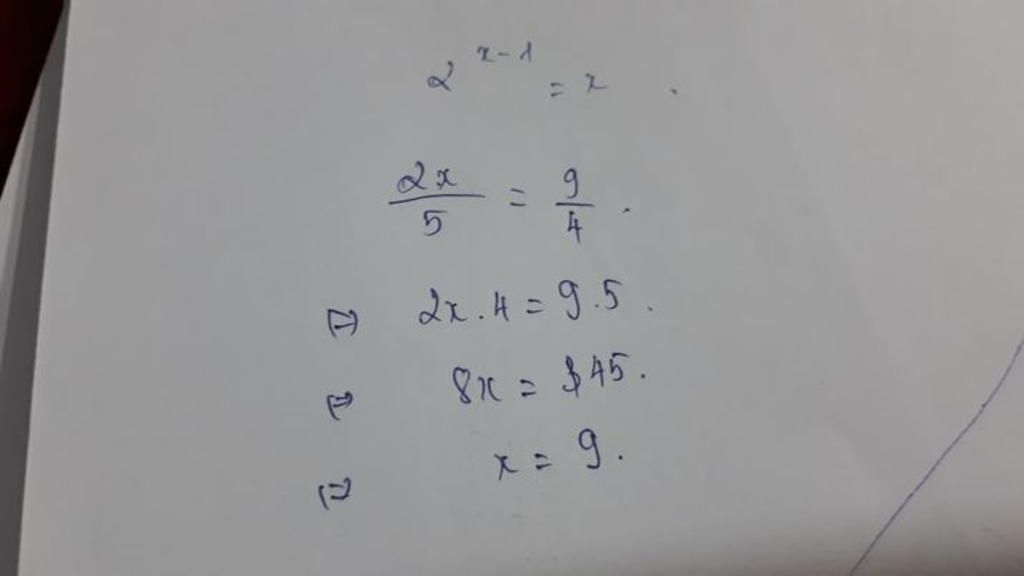 2^{x-1} = x .
\frac{2x}{5} = \frac{9}{4} .
⇔ 2x . 4 = 9 . 5 .
⇔ 8x = 45 .
⇔ x = 9 .